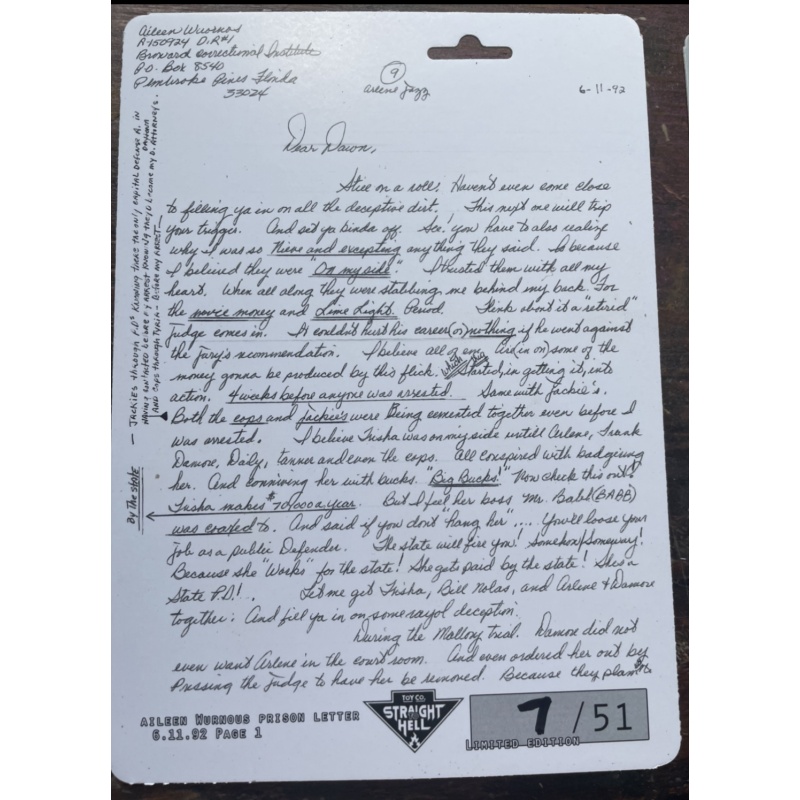 Aileen Wuornos
A-150924 D.R#1
Broward Correctional Institute
P.O. Box 8540
Pembroke Pines Florida
33024
9
Arlene Jazz
6-11-92
Dear Dawn,
Still on a roll. Haven't even come close
to filling ya in on all the deceptive dirt. This next one will trip
your trigger. And set ya kinda off. See. you have to also realize
why I was so Nieve and excepting anything they said. Is because
I believed they were "On my side". I trusted them with all my
heart. When all along they were stabbing me behind my back For
the movie money and Lime Light. Period. Think about it a "retired"
Judge comes in. It couldn't hurt his career (or) nothing if he went against
the Jury's recommendation. I believe all of em. Are (in on) some of the
money gonna be produced by this flick. which was Started, in getting it, into
action. 4 weeks before anyone was arrested. Same with Jackie's.
Both the cops and Jackie's were Being cemented together even before I
was arrested. I believe Trisha was on my side untill Arlene, Frank
Damore, Daily, tanner and even the cops. All conspired with badgiving
her. And conniving her with bucks. "Big Bucks!" Now check this out!
Trisha makes $70,000 a year. But I feel her boss Mr. Babb (BABB)
was coaxed to. And said if you don't "hang her".... You'll loose your
job as a public Defender. The state will fire you! Somehow/Someway!
Because she "Works" for the state! She gets paid by the state! She's a
State P.D!.. Let me get Trisha, Bill Nolas, and Arlene & Damore
together. And fill ya in on some royal deception.
During the Mallory trial. Damore did not
even want Arlene in the court room. And even ordered her out by
Pressing the Judge to have her be removed. Because they plan
— JACKIES through P.D's KNOWING theirs the only CAPITAL DEFENSE A. IN
DAYTONA
HAVING contacted before my ARREST KNOWING they'd become my D. Attorneys.
AND COPS through TYRIA - Before my ARREST—
By The State
AILEEN WURNOUS PRISON LETTER
6.11.92 PAGE 1
TOY CO.
STRAIGHT
TO
HELL
7/51
LIMITED EDITION